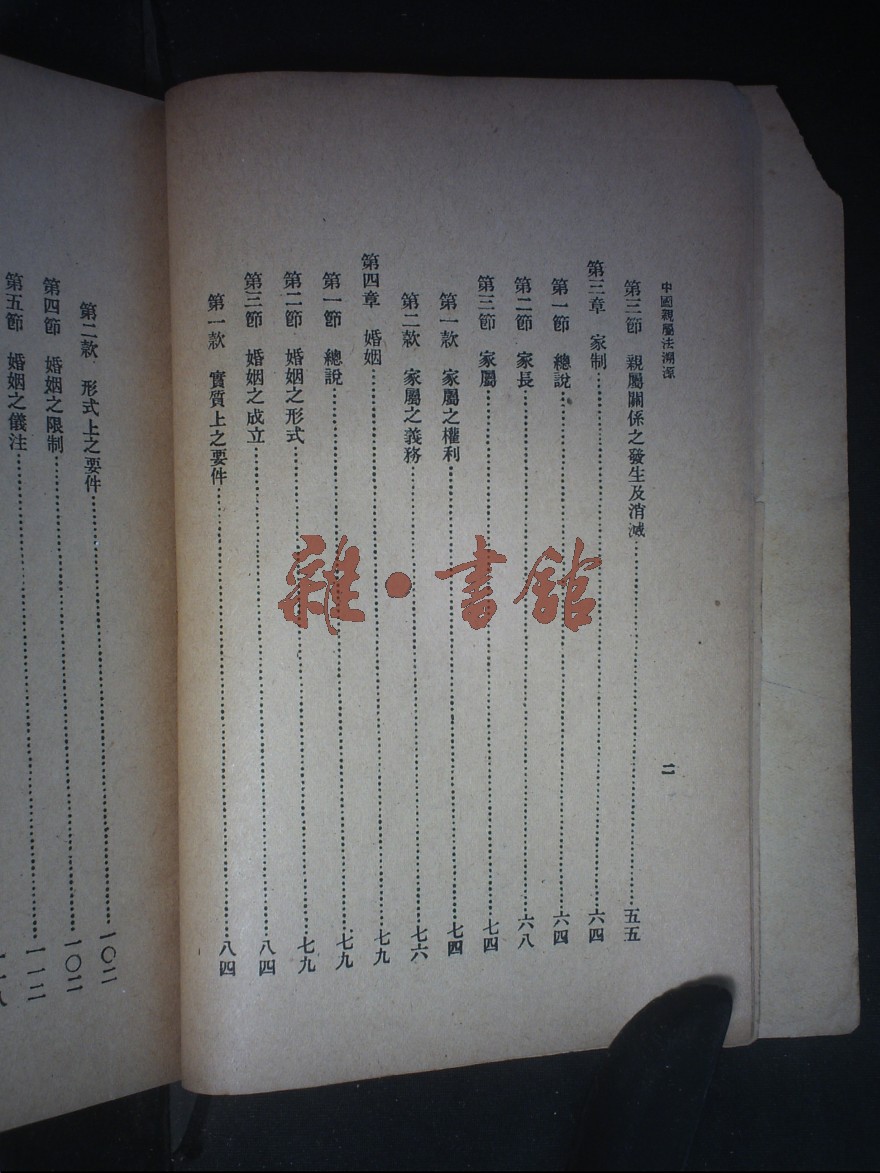 中國親屬法溯源
二
第三節 親屬關係之發生及消滅……五五
第三章 家制……六四
第一節 總說……六四
第二節 家長……六八
第三節 家屬……七四
第一款 家屬之權利……七四
第二款 家屬之義務……七六
第四章 婚姻……七九
第一節 總說……七九
第二節 婚姻之形式……七九
第三節 婚姻之成立……八四
第一款 實質上之要件……八四
第二款 形式上之要件……一〇二
第四節 婚姻之限制……一〇二
第五節 婚姻之儀注……一一二
雜·書館